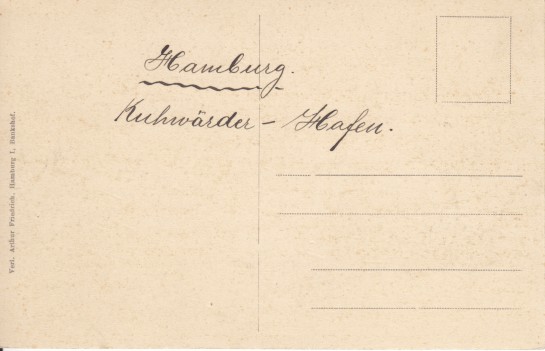 Hamburg.
Kuhwärder - Hafen.
Verl. Arthur Friedrich, Hamburg 1, Bankshof.